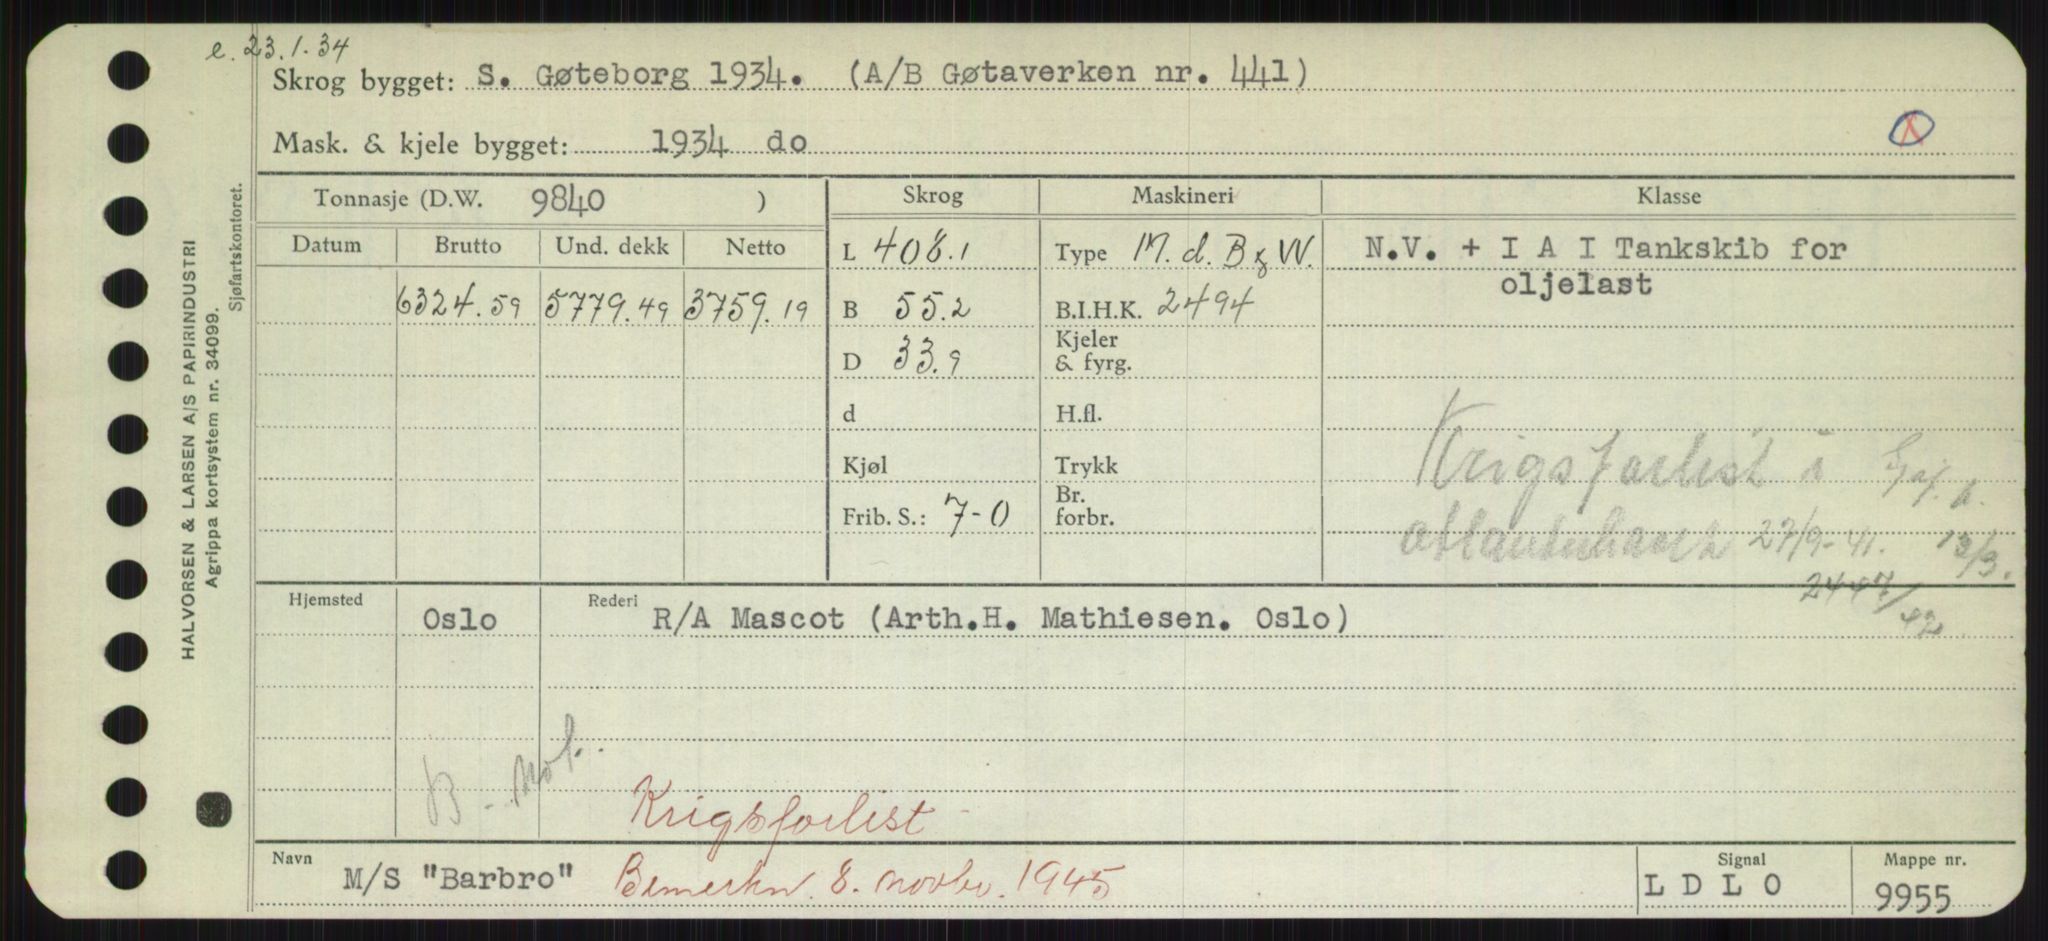 e. 23.1.34
Skrog bygget: S. Gøteborg 1934. (A/B Gøtaverken nr. 441)
X
Mask. & kjele bygget: 1934 do
HALVORSEN & LARSEN A/S PAPIRINDUSTRI
Agrippa kortsystem nr. 34099.
Sjøfartskontoret.
Tonnasje (D.W. 9840 ) Skrog Maskineri Klasse
Datum Brutto Und. dekk Netto
L 408.1 Type M. d. B & W. N.V. + I A I Tankskib for
oljelast
6324.59 5779.49 3759.19 B 55.2 B.I.H.K. 2494
D 33.9 Kjeler
& fyrg.
d H.fl.
Kjøl Trykk
Krigsforlist i
Frib. S.: 7-0 Br.
forbr.
27/9-41. 13/3.
2447/42
Hjemsted Oslo Rederi R/A Mascot (Arth.H. Mathiesen. Oslo)
B - Mot.
Krigsforlist -
Navn M/S "Barbro" Bemerkn. 8. novbr. 1945
Signal LDLO
Mappe nr. 9955